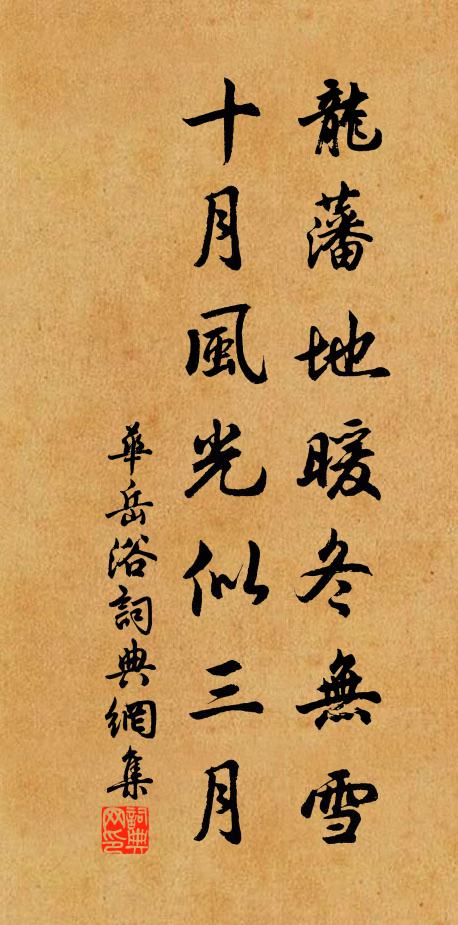 龍藩地暖冬無雪
十月風光似三月
華岳浴詞典網集
詞典网印